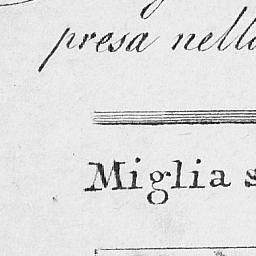 presa nello
Miglia s